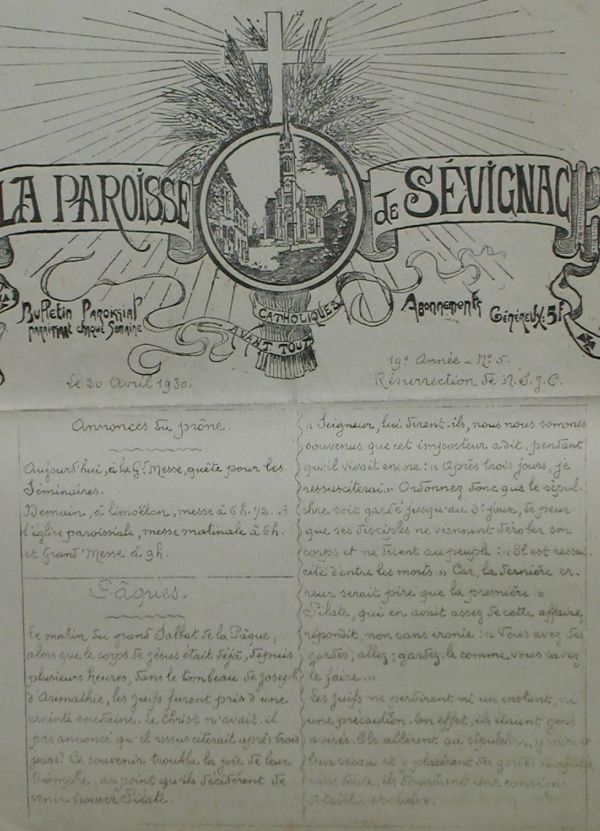 LA PAROISSE de SÉVIGNAC
Bulletin Paroissial
paraissant chaque semaine
CATHOLIQUES
AVANT TOUT
Abonnement
Généreux: 5f
Le 20 Avril 1930.
19e Année - No 5.
Résurrection de N.S.J.C.
Annonces du prône.
Aujourd'hui, à la Gd Messe, quête pour les
Séminaires.
Demain, à Limoëlan, messe à 6h. 1/2. A
l'église paroissiale, messe matinale à 6h.
et Grand'Messe à 9h.
Pâques.
Le matin du grand Sabbat de la Pâque,
alors que le corps de Jésus était déjà, depuis
plusieurs heures, dans le tombeau de Joseph
d'Arimathie, les juifs furent pris d'une
crainte soudaine. Le Christ n'avait-il
pas annoncé qu'il ressusciterait après trois
jours? Ce souvenir troubla la joie de leur
triomphe, au point qu'ils décidèrent de
venir trouver Pilate.
« Seigneur, lui dirent-ils, nous nous sommes
souvenus que cet imposteur a dit, pendant
qu'il vivait encore: « Après trois jours, je
ressusciterai » Ordonnez donc que le sépul-
chre soit gardé jusqu'au 3e jour, de peur
que ses disciples ne viennent dérober son
corps et ne disent au peuple: « Il est ressus
cité d'entre les morts » Car, la dernière er-
reur serait pire que la première. »
Pilate, qui en avait assez de cette affaire,
répondit, non sans ironie: « Vous avez des
gardes; allez; gardez-le comme vous savez
le faire. »
Les Juifs ne perdirent ni un instant, ni
une précaution. En effet, ils étaient gens
avisés. Ils allèrent au sépulchre, y mirent
leur sceau et y placèrent des gardes
sans doute, ils donnèrent une consigne